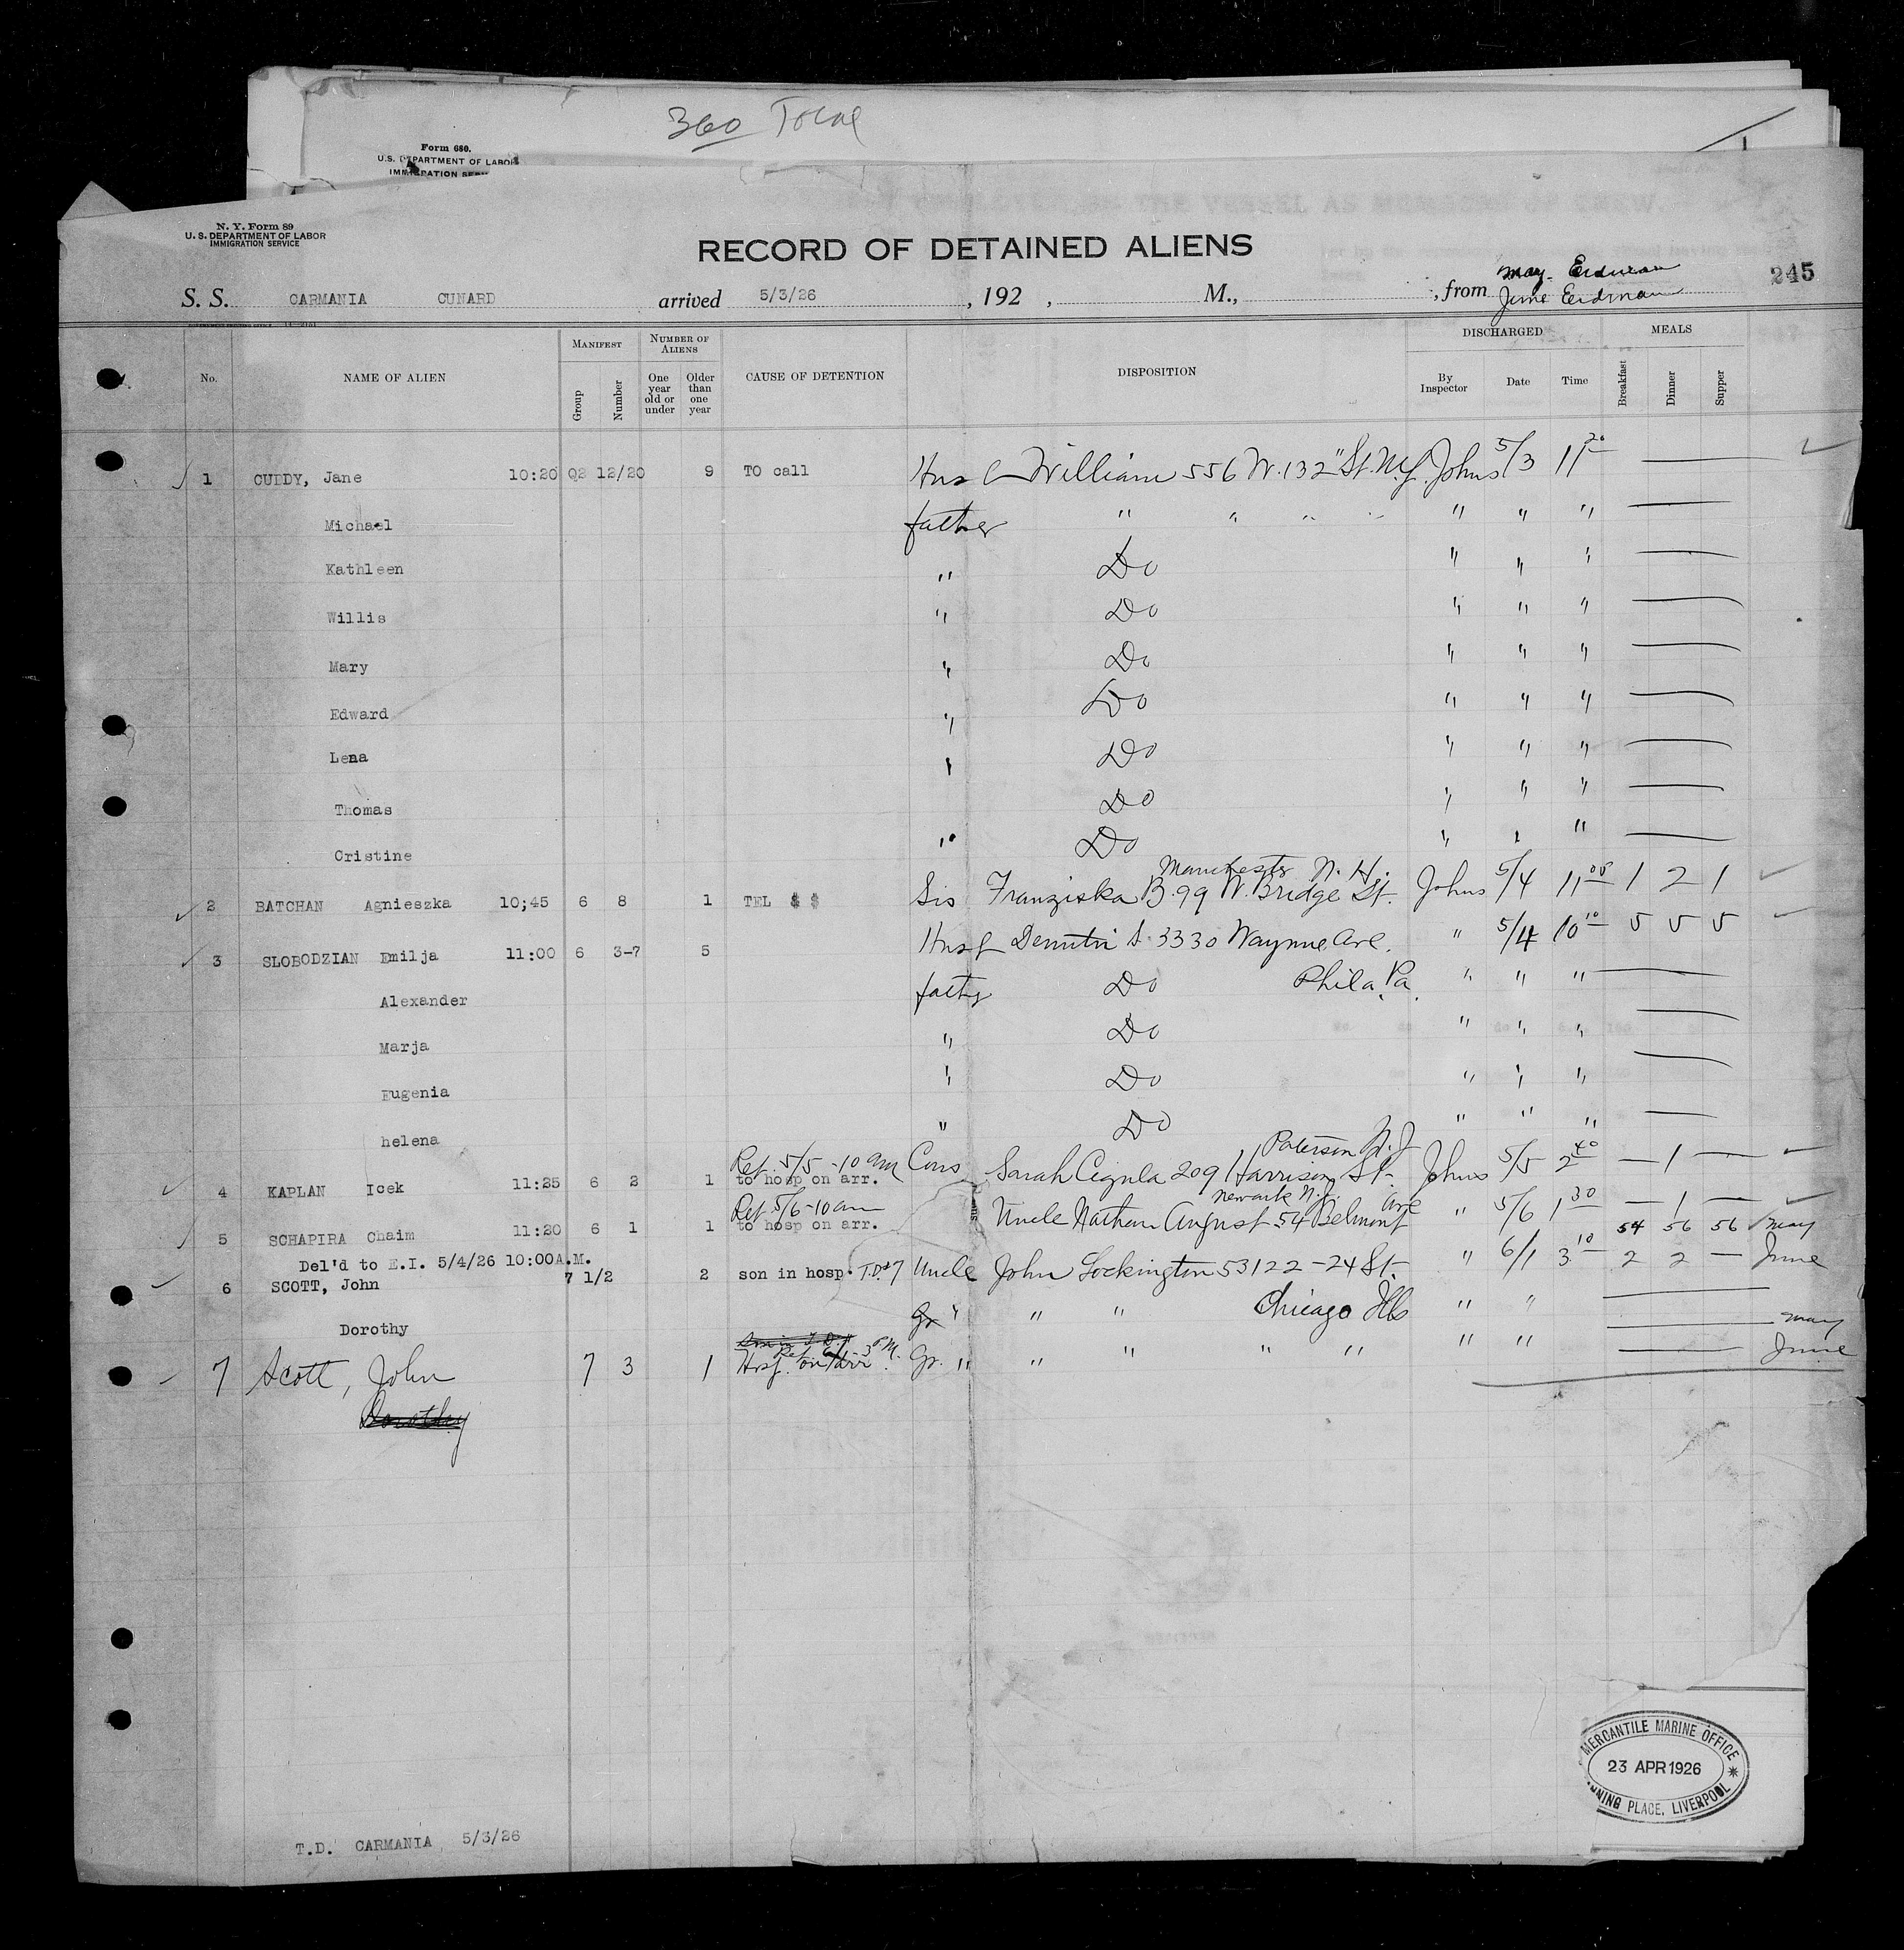 360 Total
Form 680.
U.S. DEPARTMENT OF LABOR
IMMIGRATION SERV
N. Y. Form 89
U. S. DEPARTMENT OF LABOR
IMMIGRATION SERVICE
RECORD OF DETAINED ALIENS
245
May. Erdman
S. S. CARMANIA CUNARD arrived 5/3/26, 192 , M., , from June Erdman
No. NAME OF ALIEN MANIFEST Group Number NUMBER OF ALIENS One year old or under Older than one year CAUSE OF DETENTION DISPOSITION DISCHARGED By Inspector Date Time MEALS Breakfast Dinner Supper
1 CUDDY, Jane 10:20 Q2 12/20 9 TO call Husb William 556 W. 132" St. N.Y. Johns 5/3 11 20 —
Michael father " " " " " " " —
Kathleen " Do " " " —
Willis " Do " " " —
Mary " Do " " " —
Edward " Do " " " —
Lena " Do " " " —
Thomas Do " " " —
Cristine " Do " " " —
Manchester N. H.
2 BATCHAN Agnieszka 10;45 6 8 1 TEL $ $ Sis Franziska B. 99 W. Bridge St. Johns 5/4 11 00 1 2 1
3 SLOBODZIAN Emilja 11:00 6 3-7 5 Husb Demitri S. 3330 Wayne Ave. " 5/4 10 10 5 5 5
Alexander father Do Phila. Pa. " " " —
Marja " Do " " " —
Eugenia " Do " " " —
helena " Do " " " —
Ret. 5/5 - 10 am Paterson N. J
4 KAPLAN Icek 11:25 6 2 1 to hosp on arr. Cous Sarah Cegula 209 Harrison St. Johns 5/5 2 40 — 1 —
Ret 5/6 - 10 am Newark N. J. Ave
5 SCHAPIRA Chaim 11:20 6 1 1 to hosp on arr. Uncle Nathan August 54 Belmont " 5/6 1 30 — 1 —
Del'd to E.I. 5/4/26 10:00A.M. 54 56 56 May
6 SCOTT, John 7 1/2 2 son in hosp. T.D.#7 Uncle John Lockington 53122-24 St. " 6/1 3 10 2 2 — June
Dorothy Gr " " " Chicago Ills " " —
May
Ret 6/1 - 3 PM.
7 Scott, John 7 3 1 Hosp. on arr. Gr. " " " " " " " — June
Dorothy
T.D. CARMANIA 5/3/26
MERCANTILE MARINE OFFICE
23 APR 1926
NNING PLACE, LIVERPOOL